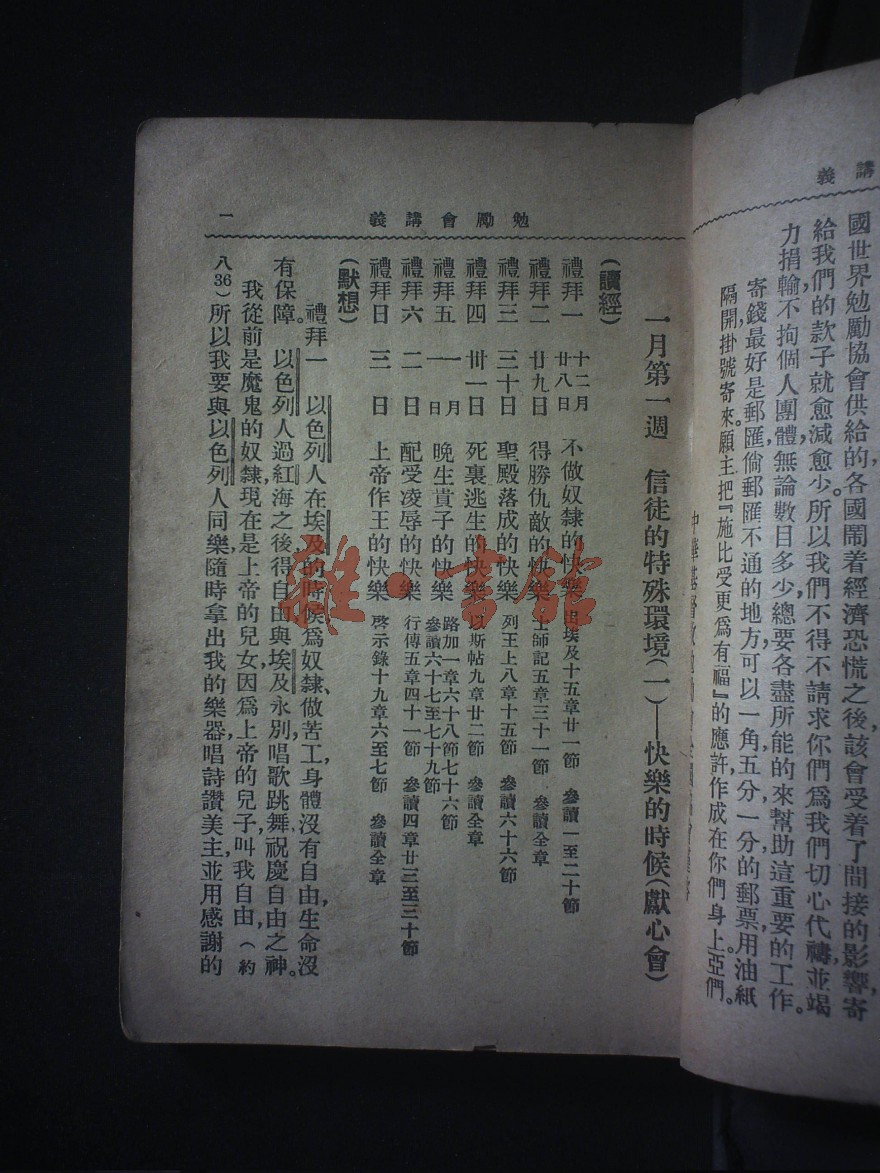 義講
國世界勉勵協會供給的各國鬧着經濟恐慌之後該會受着了間接的影響,寄
給我們的款子就愈減愈少。所以我們不得不請求你們爲我們切心代禱並竭
力捐輸不拘個人團體無論數目多少總要各盡所能的來幫助這重要的工作。
寄錢最好是郵匯倘郵匯不通的地方可以一角五分一分的郵票用油紙
隔開掛號寄來。願主把『施比受更爲有福』的應許作成在你們身上亞們。
義講會勵勉
一
一月第一週 信徒的特殊環境(一)——快樂的時候(獻心會)
(讀經)
禮拜一 十二月廿八日 不做奴隸的快樂 出埃及十五章廿一節 參讀一至二十節
禮拜二 廿九日 得勝仇敵的快樂 士師記五章三十一節 參讀全章
禮拜三 三十日 聖殿落成的快樂 列王上八章十五節 參讀六十六節
禮拜四 卅一日 死裏逃生的快樂 以斯帖九章廿二節 參讀全章
禮拜五 一月一日 晚生貴子的快樂 路加一章六十八節七十六節 參讀六十七至七十九節
禮拜六 二日 配受凌辱的快樂 行傳五章四十一節 參讀四章廿三至三十節
禮拜日 三日 上帝作王的快樂 啓示錄十九章六至七節 參讀全章
(默想)
禮拜一 以色列人在埃及的時候爲奴隸、做苦工,身體沒有自由,生命沒
有保障。以色列人過紅海之後得自由與埃及永別,唱歌跳舞祝慶自由之神。
我從前是魔鬼的奴隸,現在是上帝的兒女,因爲上帝的兒子叫我自由,(約
八36)所以我要與以色列人同樂,隨時拿出我的樂器,唱詩讚美主,並用感謝的
雜書館